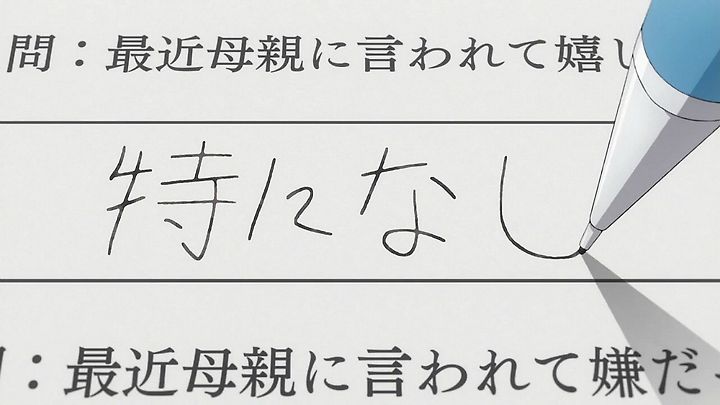 問：最近母親に言われて嬉し
特になし
：最近母親に言われて嫌だ